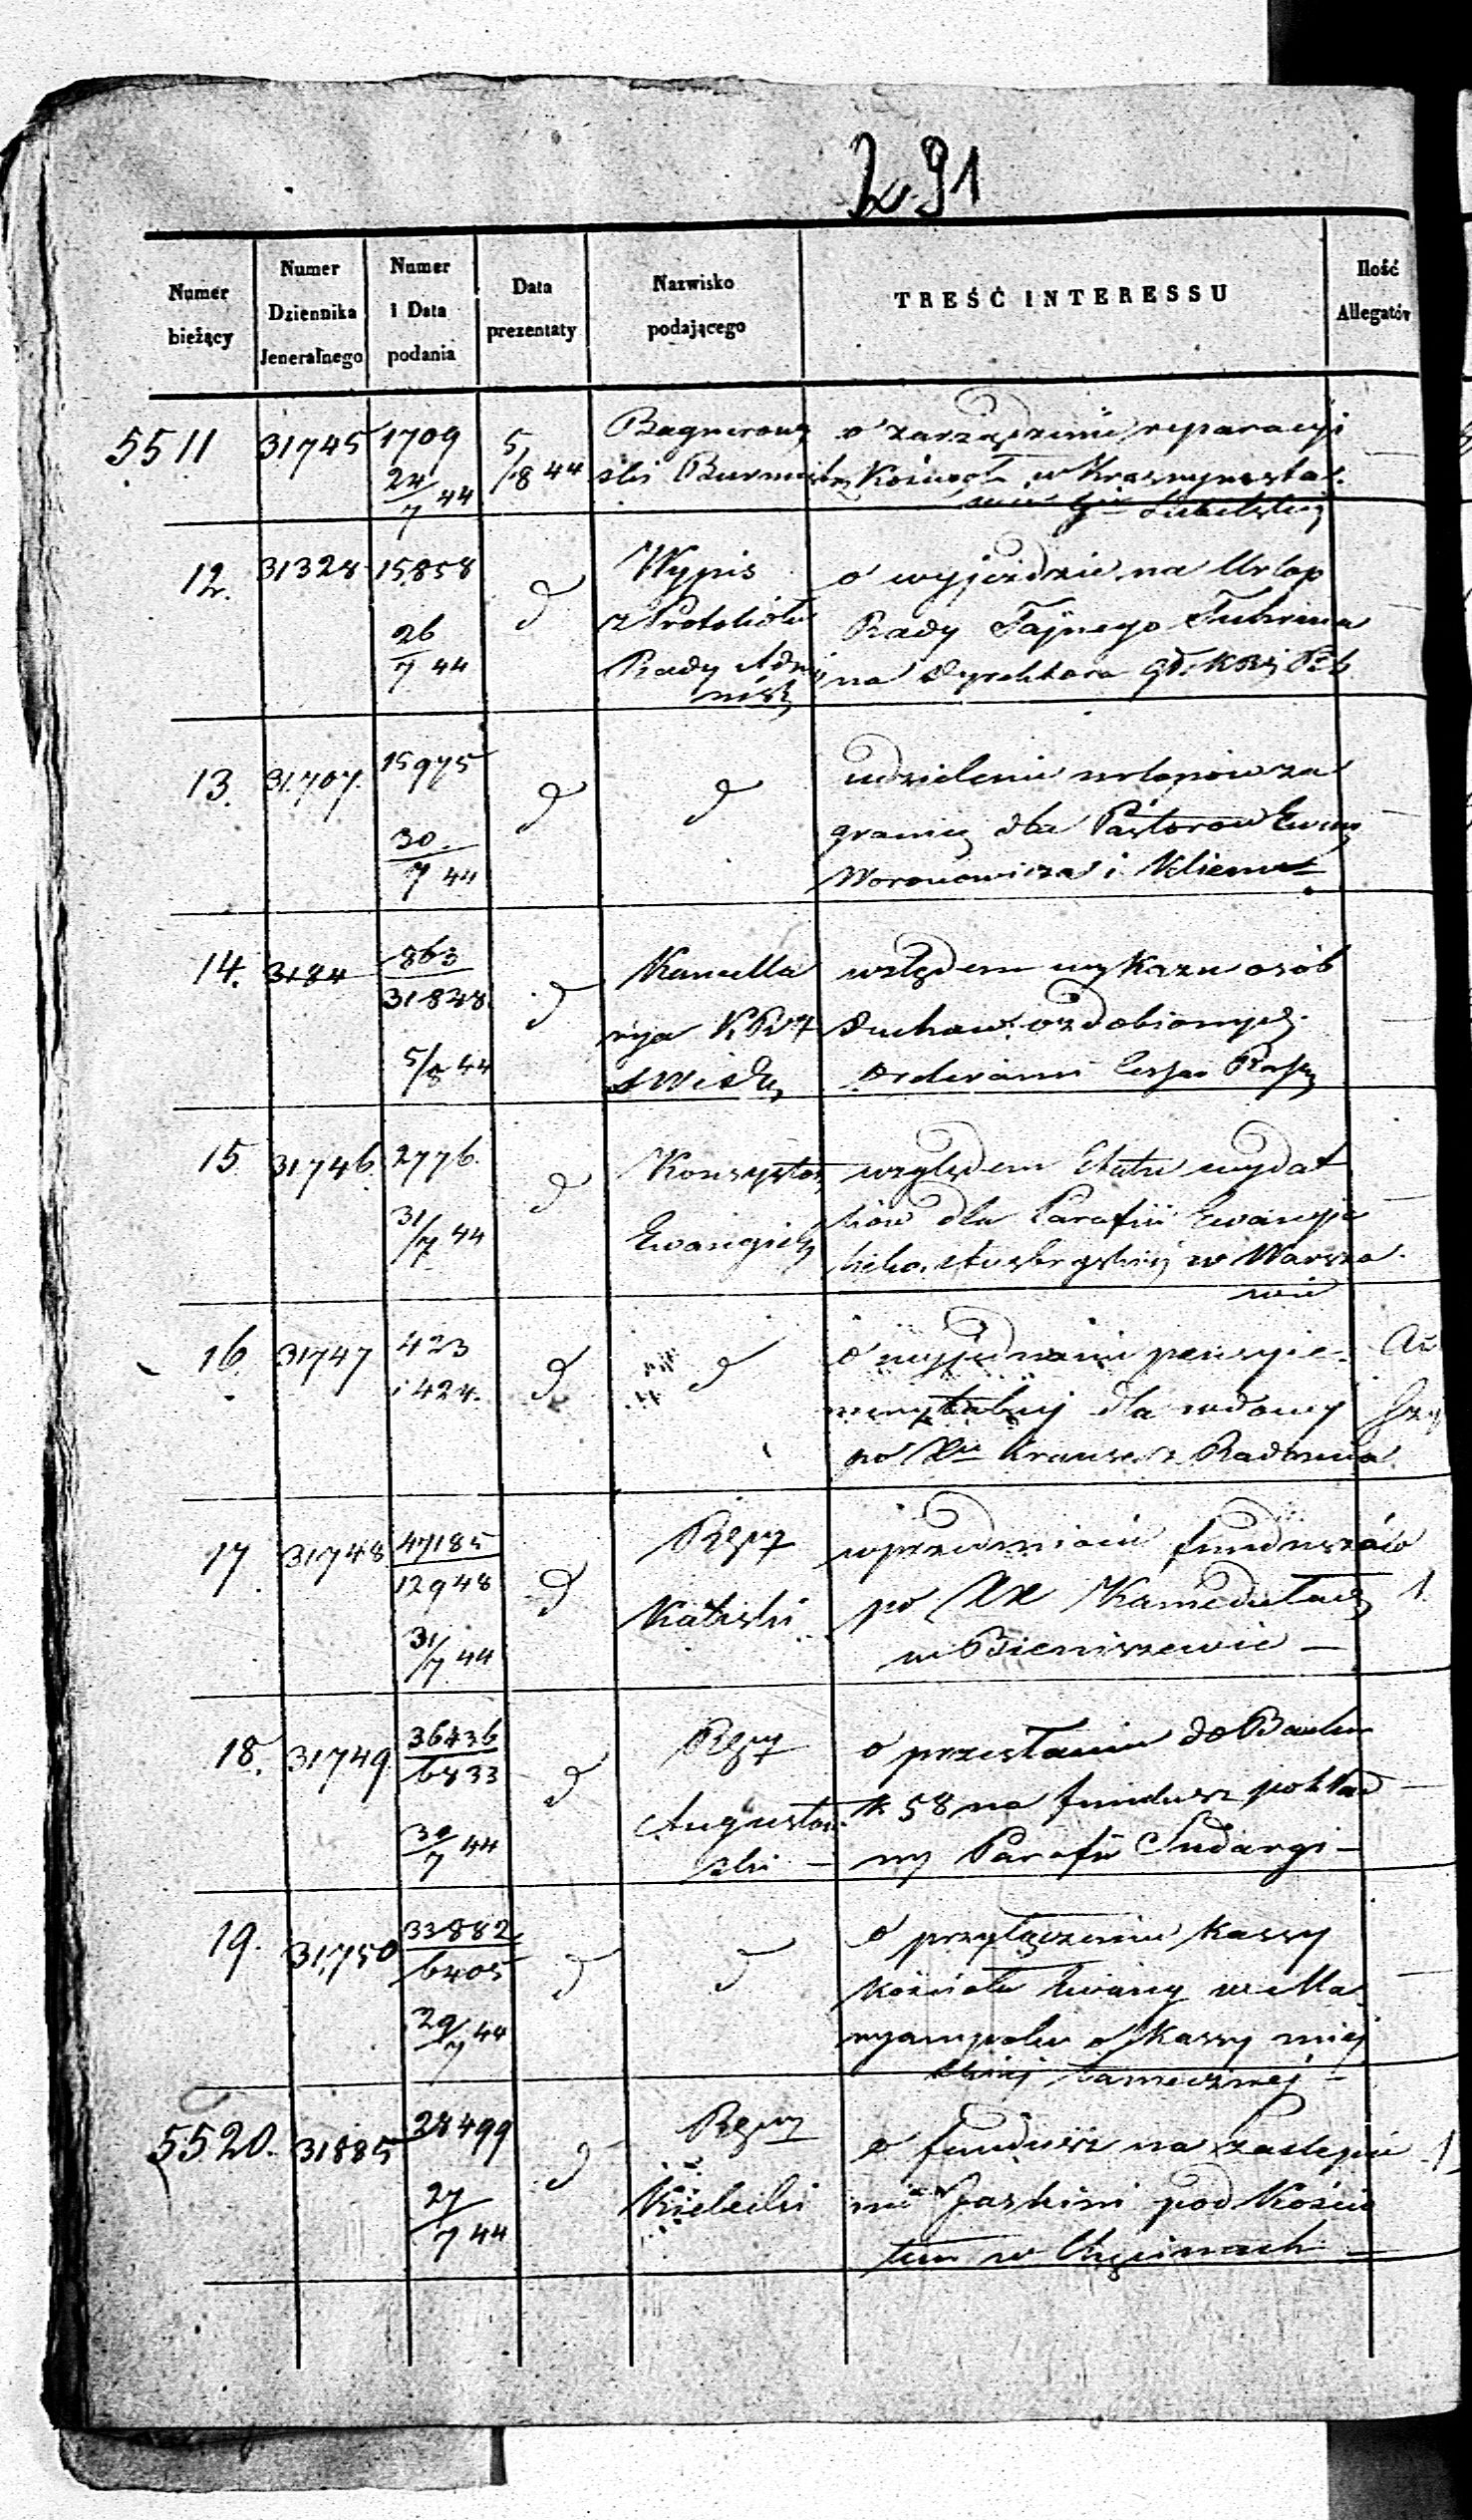 291
Numer bieżący
Numer Dziennika Jeneralnego
Numer i Data podania
Data prezentaty
Nazwisko podającego
TREŚĆ INTERESSU
Ilość Allegatów
5511 31745 1709 24/7 44 5/8 44
ski Burmistrz
o zarządzenie reparacyi
Kościoła w Krasnymsta-
wie Lubelskiej
12. 31328 15858 26/7 44 d
Wypis
z Protokółu
Rady Admi
nistr
o wyjeździe na Urlop
Rady Tajnego
na Dyrektora
13. 31707. 15975 30/7 44 d d
udzielenie urlopów za
granicę dla Pastorów Ewang
Woronowicza i
14. 3184 863/31848 5/8 44 d
Kancella
rya
względem wykazu osób
Duchow. ozdobionych
Orderami
15 31746. 2776. 31/7 44 d
Konsystorz
Ewangielic
względem Etatu wydat
ków dla Parafii Ewangie
licko. Augsburgskiej w Warsza-
wie
16. 31747 423 i 424. d d
o wyjednanie pensyi e-
merytalnej dla wdowy
po Krauze z Radomia
17. 31748 47185/12948 31/7 44 d
Rząd
Kaliski
w przedmiocie funduszów
po XX Kamedułach
w Bieniszewie — 1.
18. 31749 36436/6833 30/7 44 d
Rząd
Augustow
ski —
o przesłaniu do Banku
58 na fundusz pokład
ny Parafii Sudargi —
19. 31750 33882/6405 29/7 44 d d
o przyłączenie Kassy
Kościoła Ewang w Ma-
ryampolu do Kassy miej
skiej tamecznej —
5520. 31885 28499 27/7 44 d
Rząd
Kielecki
o fundusz na zasklepie
nie Jaskini pod Kościo
łem w Chęcinach — 1